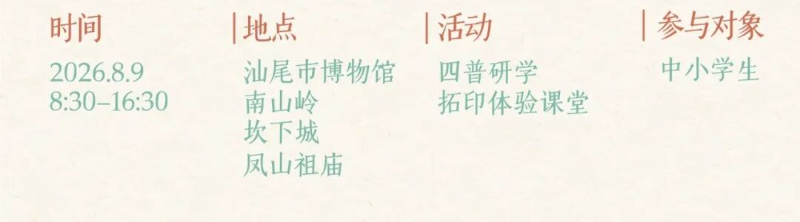 时间
2026.8.9
8:30–16:30
地点
汕尾市博物馆
南山岭
坎下城
凤山祖庙
活动
四普研学
拓印体验课堂
参与对象
中小学生